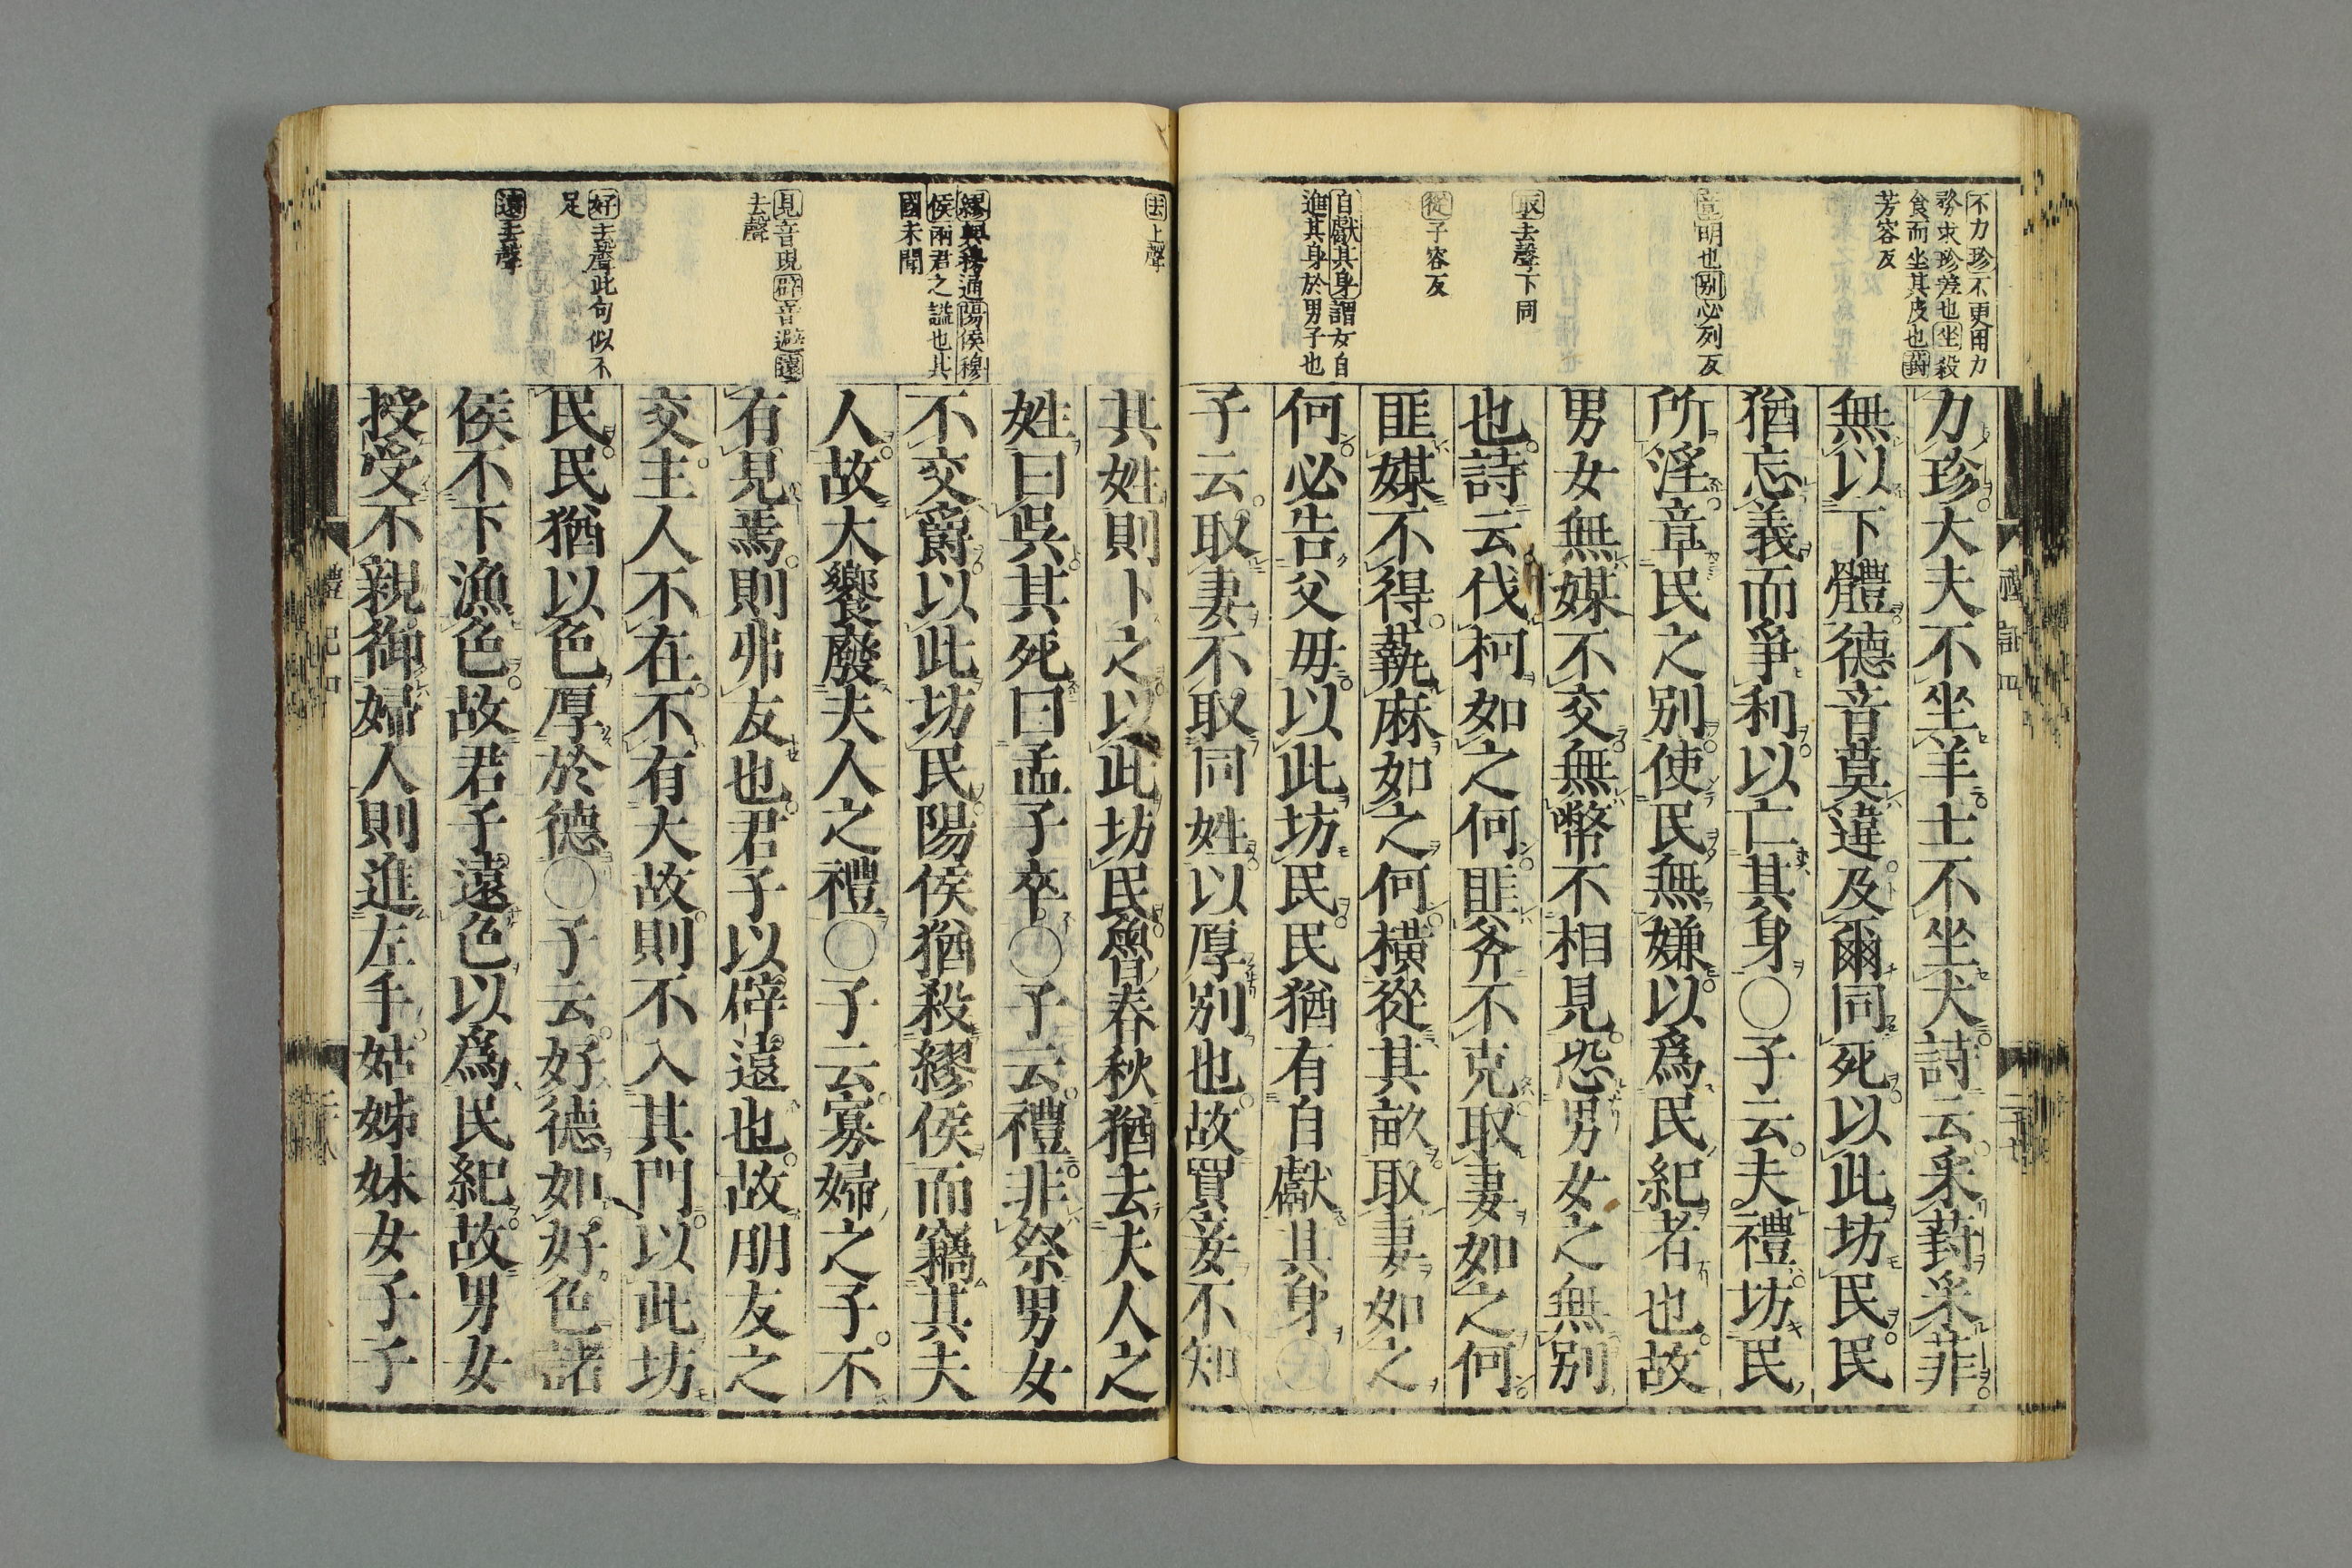 不力珍不更用力
務求珍羞也坐殺
食而坐其皮也葑
芳容反
章明也別必列反
取去聲下同
從子容反
自獻其身謂女自
進其身於男子也
力珍大夫不坐羊士不坐犬詩云采葑采菲
無以下體德音莫違及爾同死以此坊民民
猶忘義而爭利以亡其身〇子云夫禮坊民
所淫章民之別使民無嫌以爲民紀者也故
男女無媒不交無幣不相見恐男女之無別
也詩云伐柯如之何匪斧不克取妻如之何
匪媒不得蓺麻如之何橫從其畝取妻如之
何必告父母以此坊民民猶有自獻其身〇
子云取妻不取同姓以厚別也故買妾不知
禮記四
二十七
去上聲
繆與穆通陽侯穆
侯兩君之謚也其
國未聞
見音現辟音避遠
去聲
好去聲此句似不
足
遠去聲
其姓則卜之以此坊民魯春秋猶去夫人之
姓曰吳其死曰孟子卒〇子云禮非祭男女
不交爵以此坊民陽侯猶殺繆侯而竊其夫
人故大饗廢夫人之禮〇子云寡婦之子不
有見焉則弗友也君子以辟遠也故朋友之
交主人不在不有大故則不入其門以此坊
民民猶以色厚於德〇子云好德如好色諸
侯不下漁色故君子遠色以爲民紀故男女
授受不親御婦人則進左手姑姊妹女子子
禮記四
二十八